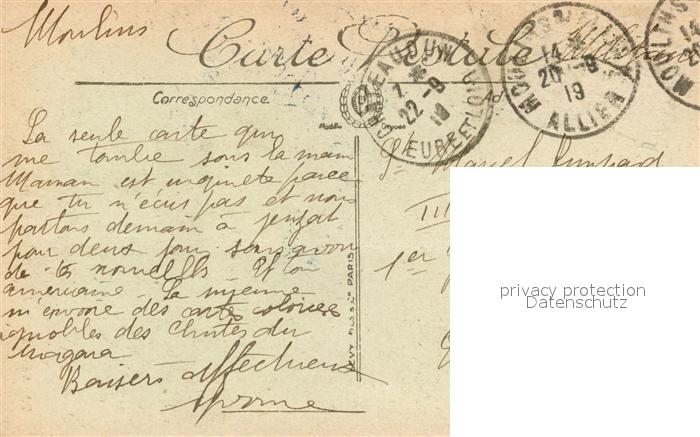 Moulins
Carte Postale
Militaire
Correspondance.
Ad
CHATEAUDUN
22 - 9
EURE ET LOIR
MOULINS S ALLIER
14
20 - 9
19
ALLIER
MOULINS
14
La seule carte qui
me tombe sous la main
Maman est inquiète parce
que tu n'écris pas et nous
partons demain à Jenzat
pour deux jours sans avoir
de tes nouvelles. Et ton
américaine. La mienne
m'envoie des cartes coloriées
ignobles des chutes du
Niagara
Baisers affectueux
Yvonne
LEVY FILS & Cie PARIS
St Marcel
III
1er
privacy protection
Datenschutz